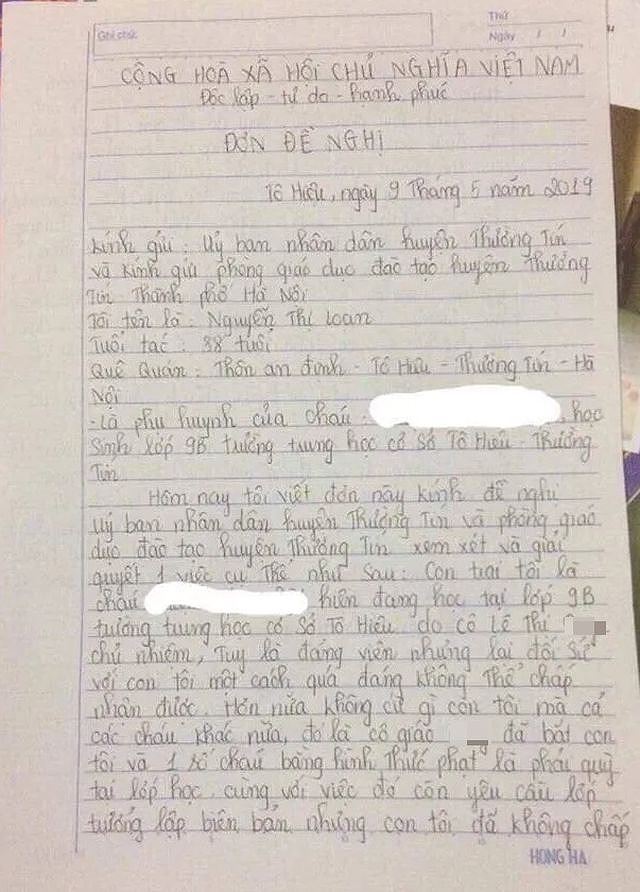 Ghi chú:
Thứ
Ngày / /
CỘNG HOÀ XÃ HỘI CHỦ NGHĨA VIỆT NAM
Độc lập - tự do - hạnh phúc
ĐƠN ĐỀ NGHỊ
Tô Hiệu, ngày 9 Tháng 5 năm 2019
Kính gửi : Uỷ ban nhân dân huyện Thường Tín
và kính gửi phòng giáo dục đào tạo huyện Thường
Tín Thành phố Hà Nội
Tôi tên là : Nguyễn Thị Loan
Tuổi tác : 38 tuổi
Quê Quán : Thôn an định - Tô Hiệu - Thường Tín - Hà
Nội
- Là phụ huynh của cháu học
sinh lớp 9B tường trung học cơ Sở Tô Hiệu - Thường
Tín
Hôm nay tôi viết đơn này kính đề nghị
uỷ ban nhân dân huyện Thường Tín và phòng giáo
dục đào tạo huyện Thường Tín xem xét và giải
quyết 1 việc cụ Thể như sau : Con trai tôi là
cháu hiện đang học tại lớp 9B
tường trung học cơ Sở Tô Hiệu do cô Lê Thị
chủ nhiệm, Tuy là đảng viên nhưng lại đối sử
với con tôi một cách quá đáng không Thể chấp
nhận được. Hơn nữa không cứ gì con tôi mà cả
các cháu khác nữa, đó là cô giáo đã bắt con
tôi và 1 số cháu bằng hình Thức phạt là phải quỳ
tại lớp học. cùng với việc đó còn yêu cầu lớp
tưởng lập biên bản nhưng con tôi đã không chấp
HONG HA